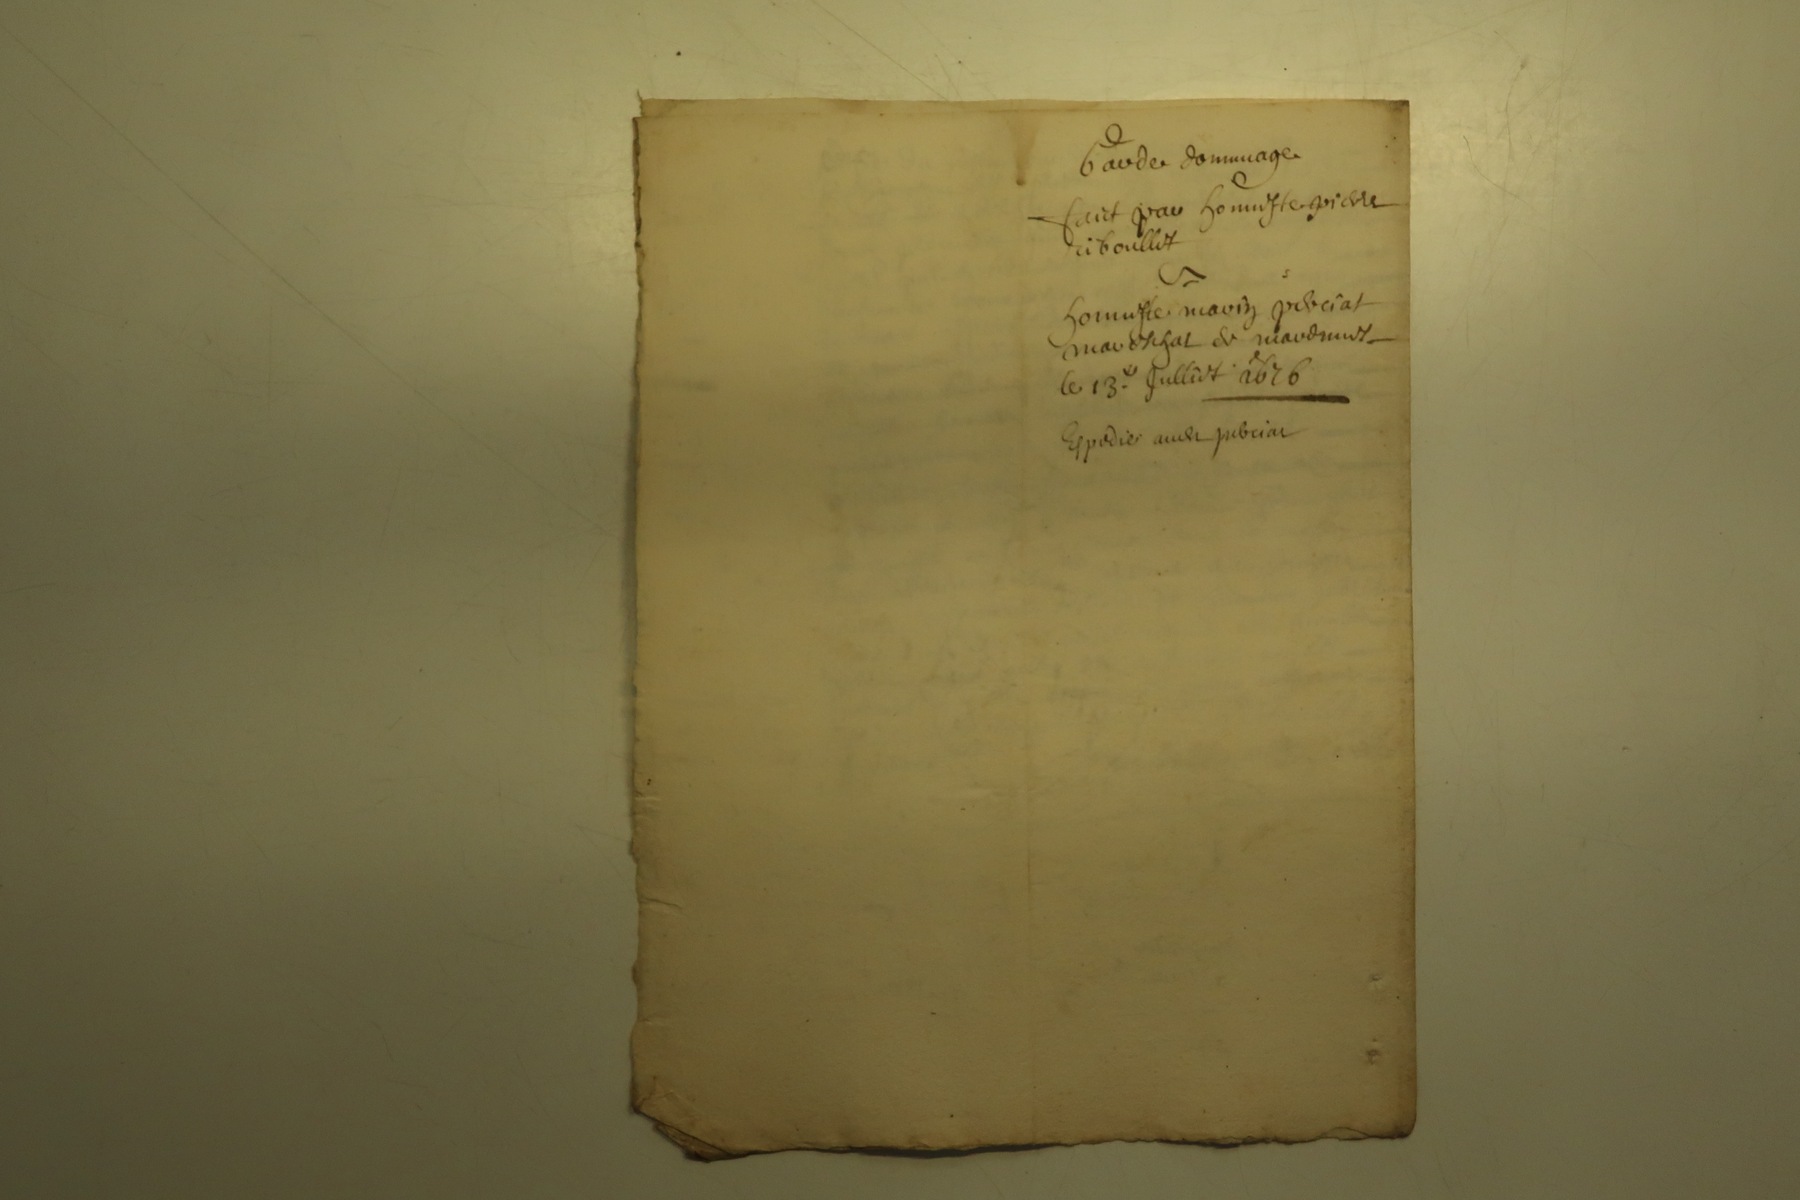 Garde dommage
faict par honneste pierre
riboullet
A
honneste marin perciat
mareschal de
le 13e Julliet 1676
Expedie audit perciat